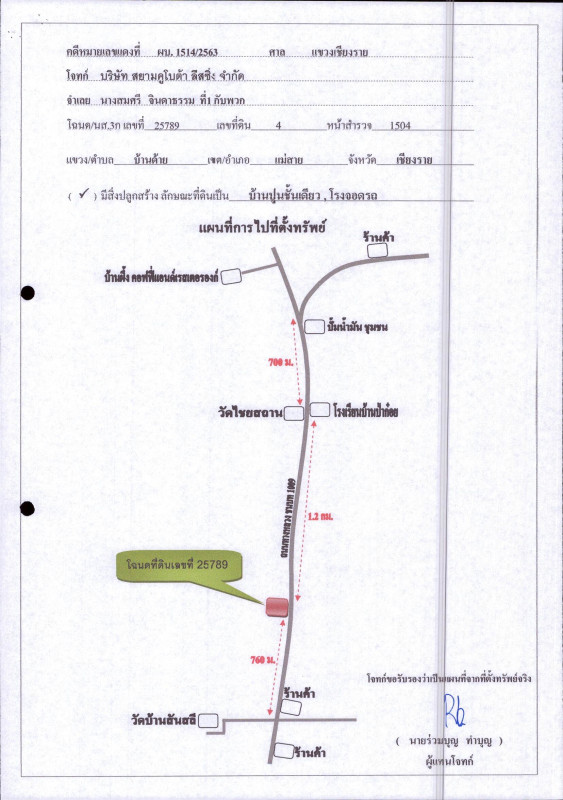 คดีหมายเลขแดงที่ ผบ. 1514/2563 ศาล แขวงเชียงราย
โจทก์ บริษัท สยามคูโบต้า ลีสซิ่ง จำกัด
จำเลย นางสมศรี จินดาธรรม ที่1 กับพวก
โฉนด/นส.3ก เลขที่ 25789 เลขที่ดิน 4 หน้าสำรวจ 1504
แขวง/ตำบล บ้านด้าย เขต/อำเภอ แม่สาย จังหวัด เชียงราย
( ✓ ) มีสิ่งปลูกสร้าง ลักษณะที่ดินเป็น บ้านปูนชั้นเดียว , โรงจอดรถ
แผนที่การไปที่ตั้งทรัพย์
ร้านค้า
บ้านผึ้ง คอฟฟี่แอนด์เรสเตอรองก์
ปั๊มน้ำมัน ชุมชน
700 ม.
วัดไชยสถาน
โรงเรียนบ้านป่าก๋อย
ถนนทางหลวง ชนบท 1009
1.2 กม.
โฉนดที่ดินเลขที่ 25789
760 ม.
โจทก์ขอรับรองว่าเป็นแผนที่จากที่ตั้งทรัพย์จริง
ร้านค้า
วัดบ้านสันสลี
( นายร่วมบุญ ทำบุญ )
ร้านค้า
ผู้แทนโจทก์